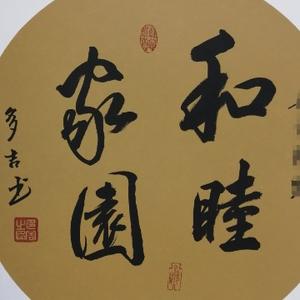 和睦
家園
多吉书